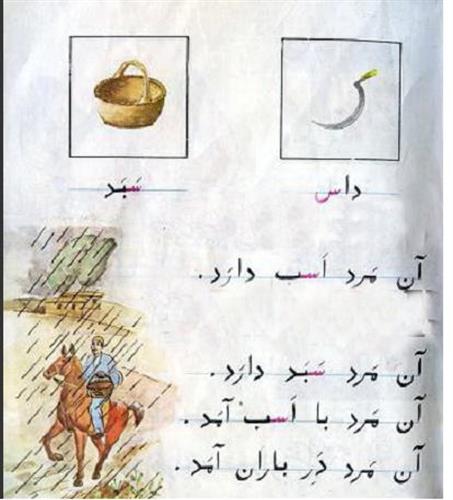 داس سَبَد
آن مَرد اَسب دارَد.
آن مَرد سَبَد دارَد.
آن مَرد با اَسب آمَد.
آن مَرد دَر باران آمَد.